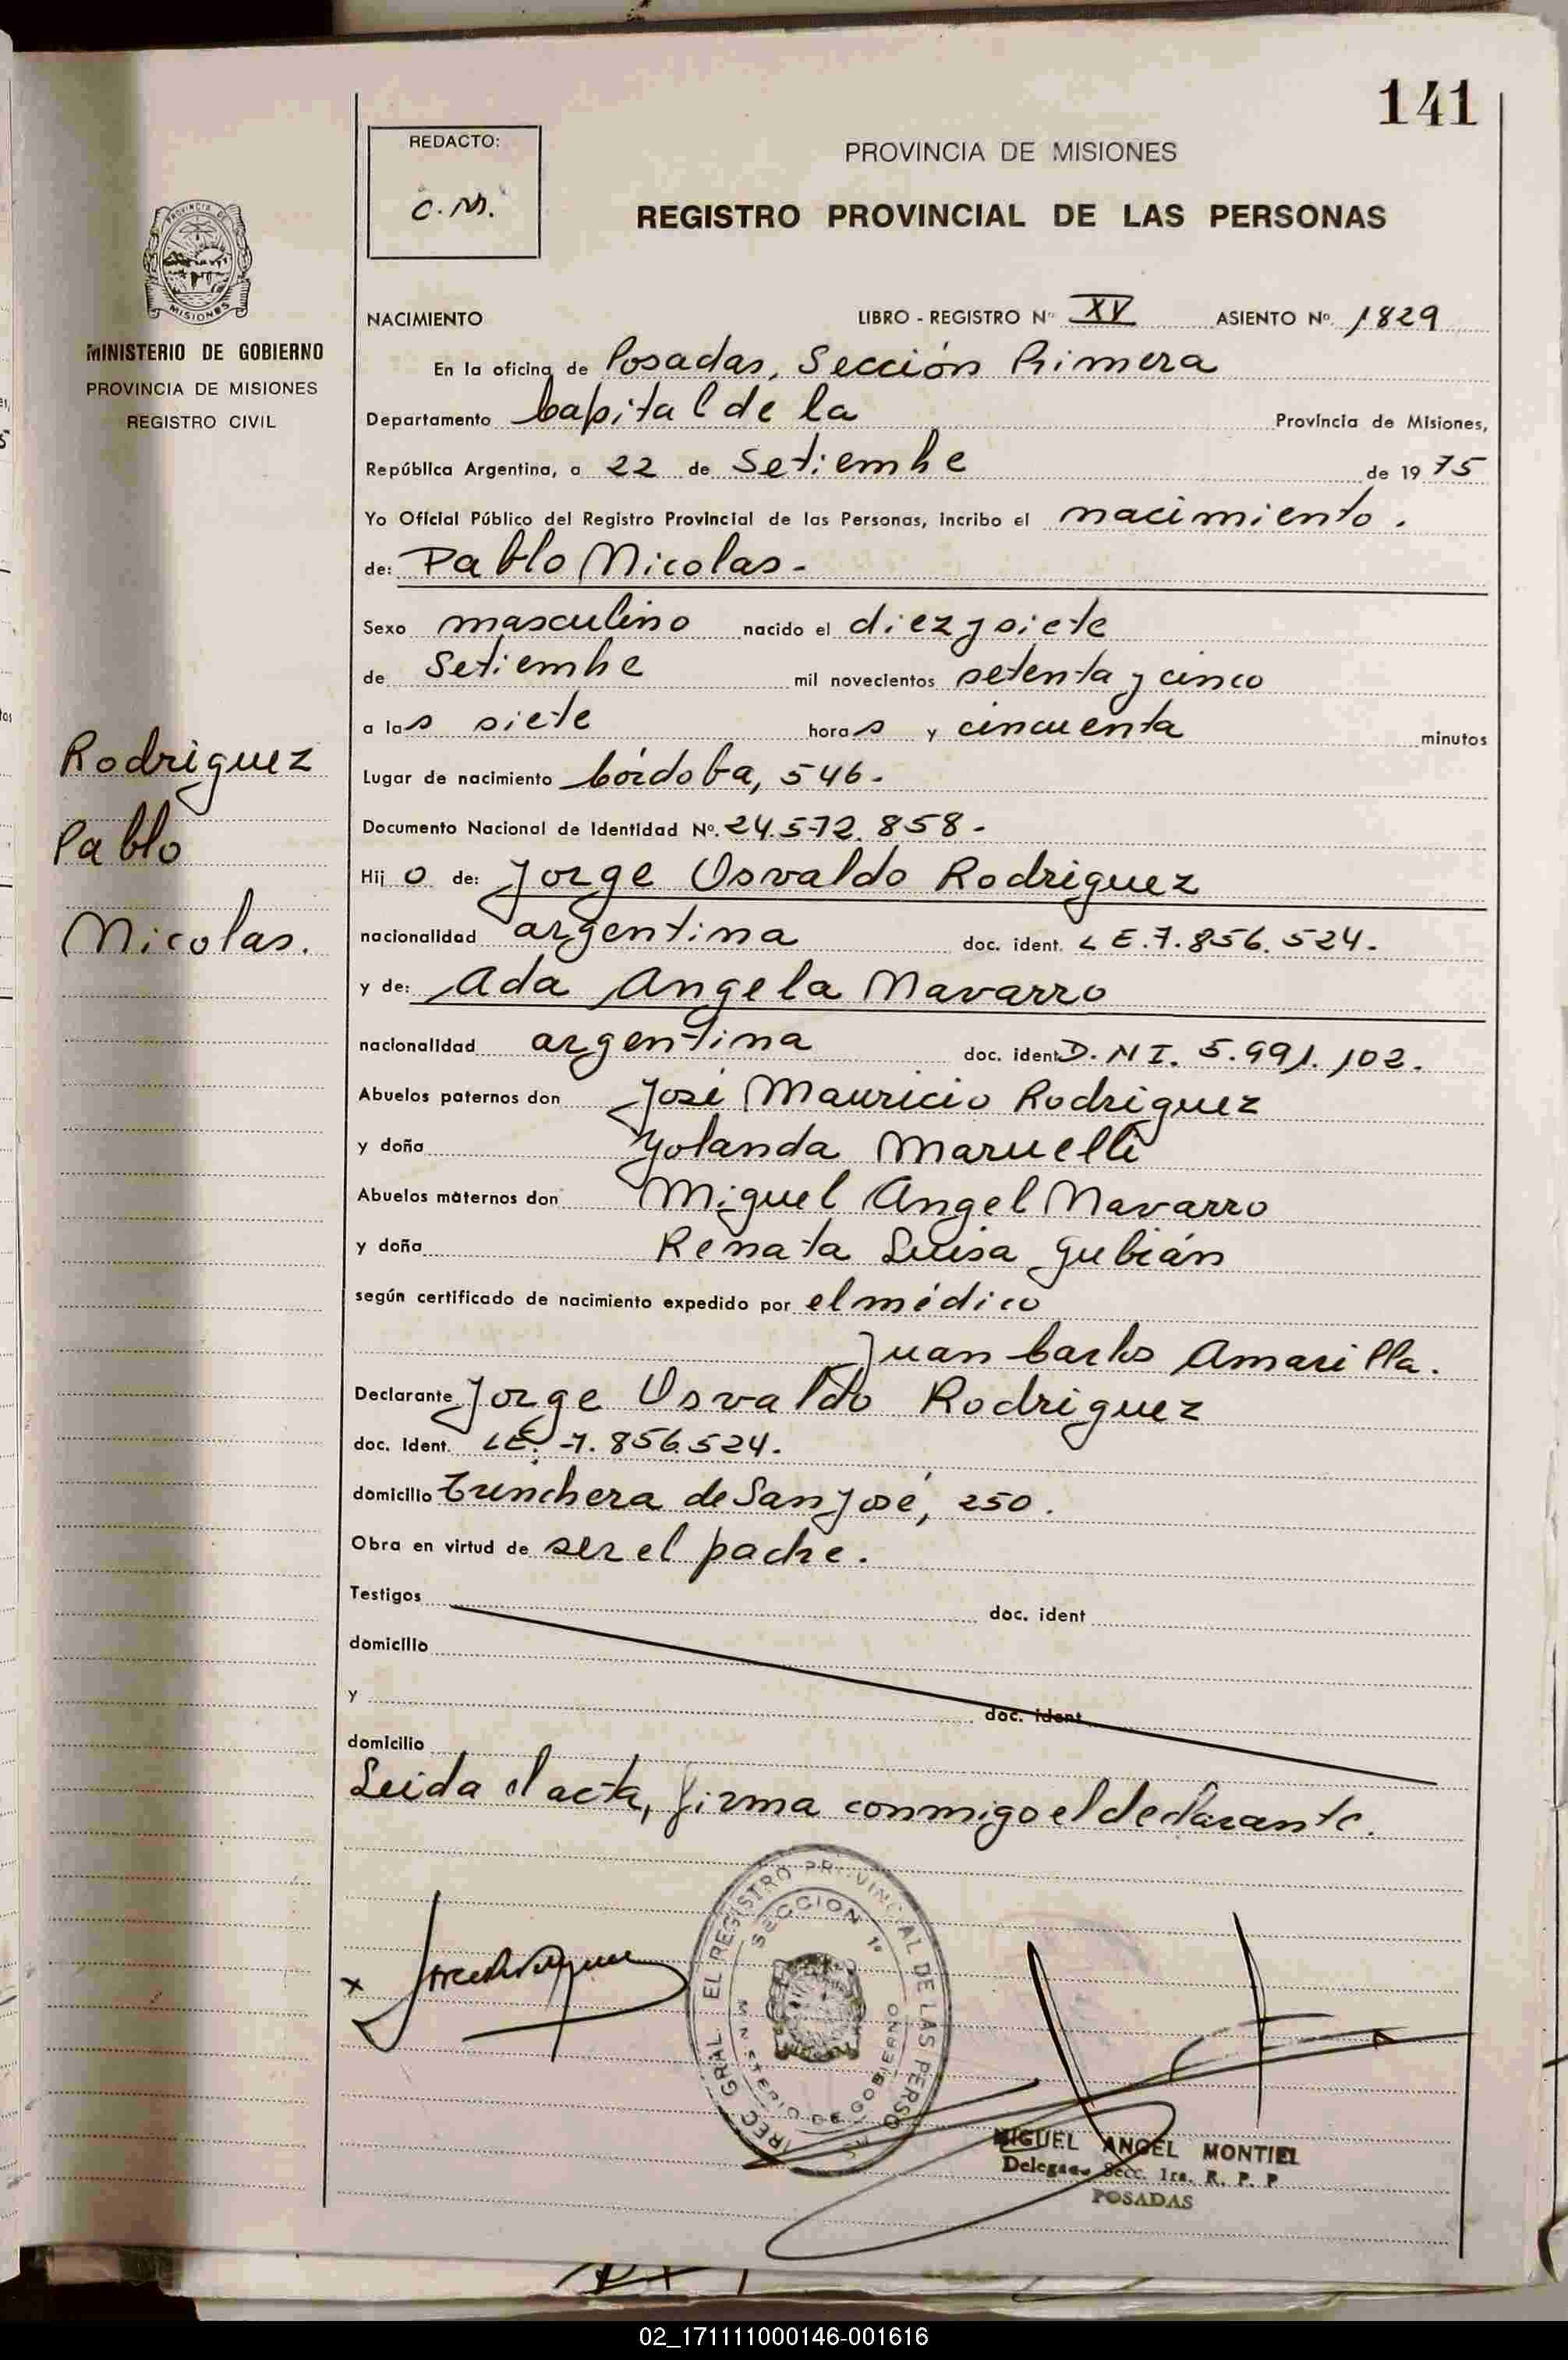 141
REDACTO:
C.M.
PROVINCIA DE MISIONES
REGISTRO PROVINCIAL DE LAS PERSONAS
PROVINCIA DE
MISIONES
MINISTERIO DE GOBIERNO
PROVINCIA DE MISIONES
REGISTRO CIVIL
NACIMIENTO LIBRO - REGISTRO Nº XV ASIENTO Nº 1829
En la oficina de Posadas, Sección Primera
Departamento Capital de la Provincia de Misiones,
República Argentina, a 22 de Setiembre de 1975
Yo Oficial Público del Registro Provincial de las Personas, incribo el nacimiento.
de: Pablo Nicolas-
Sexo masculino nacido el diez y siete
de Setiembre mil novecientos setenta y cinco
a las siete horas y cincuenta minutos
Lugar de nacimiento Córdoba, 546-
Documento Nacional de Identidad Nº. 24.572.858-
Hijo de: Jorge Osvaldo Rodriguez
nacionalidad argentina doc. ident. LE.7.856.524-
y de: Ada Angela Navarro
nacionalidad argentina doc. ident D.NI. 5.991.102.
Abuelos paternos don José Mauricio Rodriguez
y doña Yolanda Maruelli
Abuelos maternos don Miguel Angel Navarro
y doña Renata Luisa Gubián
según certificado de nacimiento expedido por el médico
Juan Carlos Amarilla.
Declarante Jorge Osvaldo Rodriguez
doc. Ident. LE. 7.856.524.
domicilio Trinchera de San José, 250.
Obra en virtud de ser el padre.
Testigos doc. ident
domicilio
y doc. ident
domicilio
Leida el acta, firma conmigo el declarante.
Rodriguez
Pablo
Nicolas.
x
DIREC. GRAL. EL REGISTRO PROVINCIAL DE LAS PERSONAS
SECCION 1ª
MINISTERIO DE GOBIERNO
MIGUEL ANGEL MONTIEL
Delegado Secc. 1ra. R. P. P
POSADAS
02_171111000146-001616